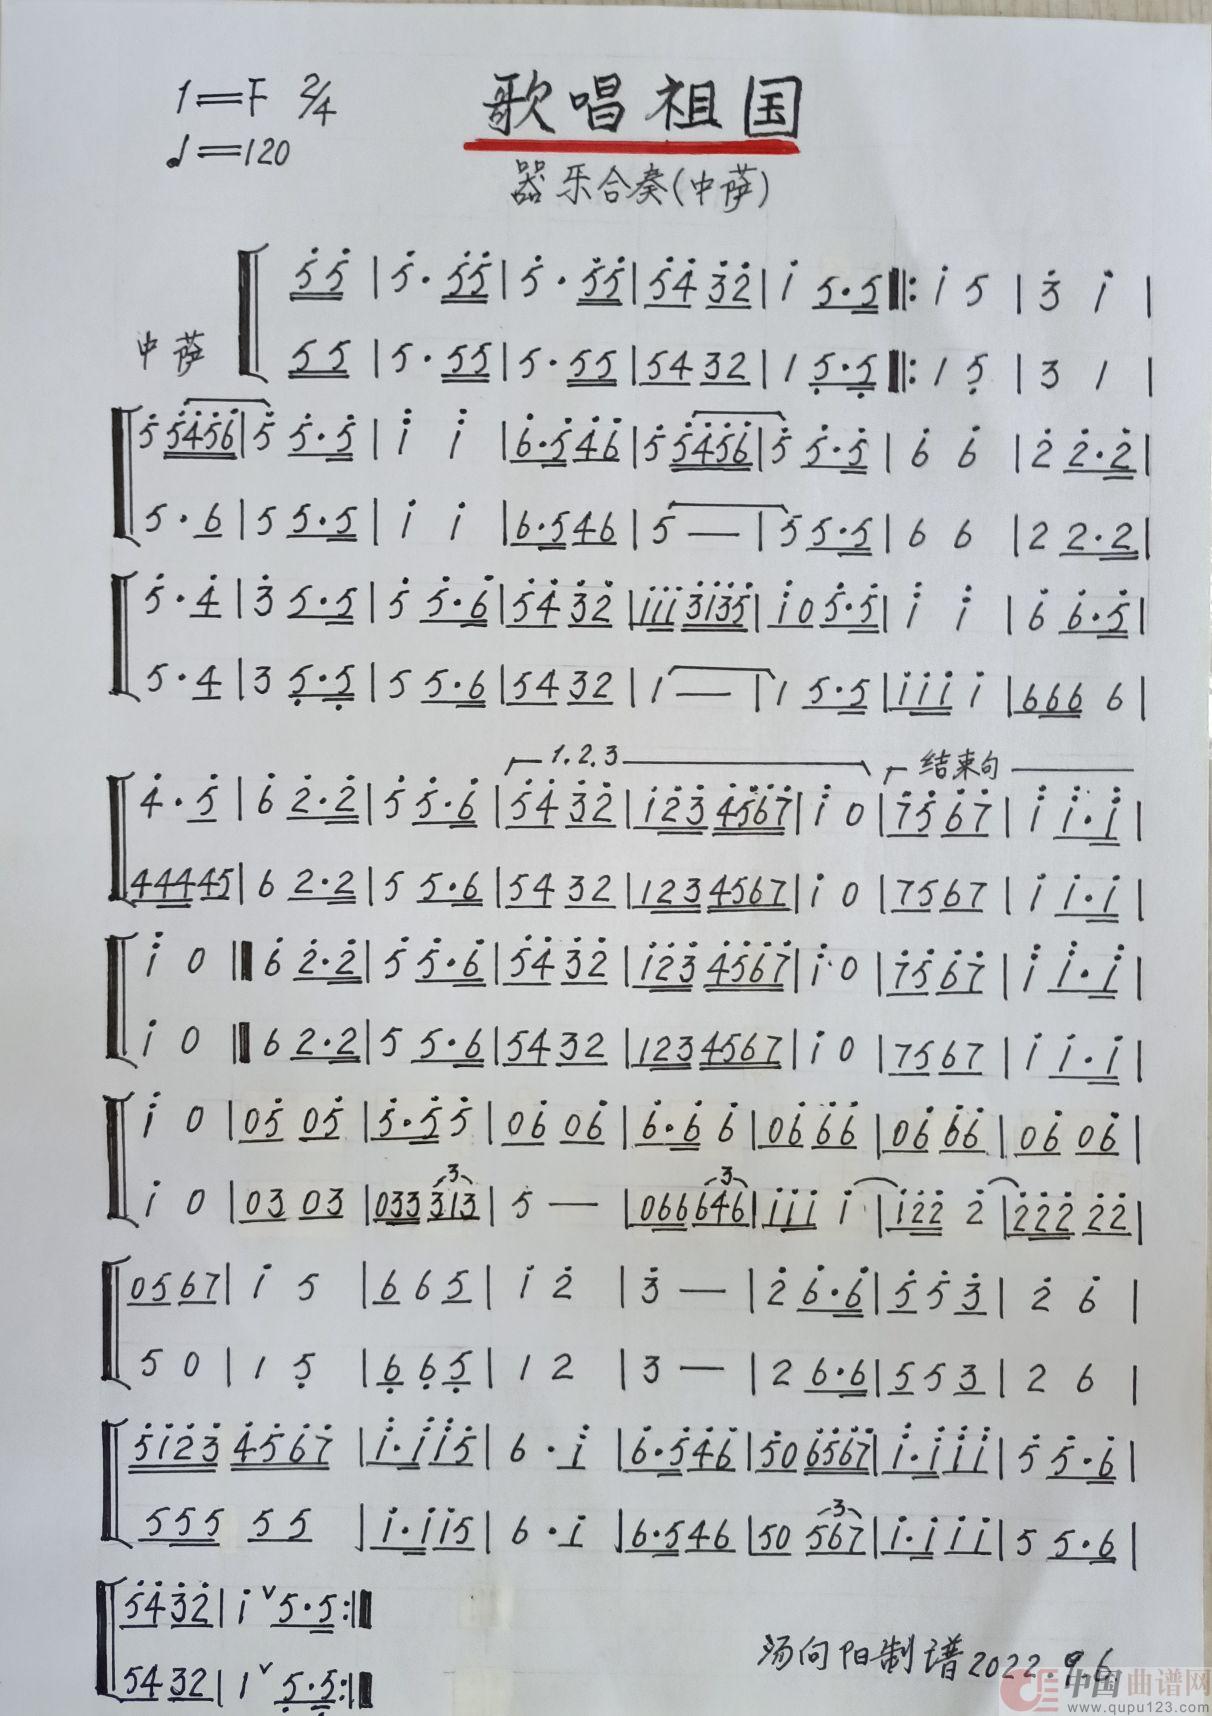 1=F 2/4 歌唱祖国
♩=120
器乐合奏(中萨)
5̇5̇ | 5̇· 5̇5̇ | 5̇· 5̇5̇ | 5̇4̇ 3̇2̇ | 1̇ 5·5 ‖: 1̇ 5 | 3̇ 1̇ |
中萨 55 | 5· 55 | 5· 55 | 54 32 | 1 5̣·5̣ ‖: 1 5̣ | 3 1 |
5̇ 5̇4̇5̇6̇ | 5̇ 5̇·5̇ | 1̇ 1̇ | 6̇·5̇ 4̇6̇ | 5̇ 5̇4̇5̇6̇ | 5̇ 5̇·5̇ | 6̇ 6̇ | 2̇ 2̇·2̇ |
5· 6 | 5 5·5 | 1̇ 1̇ | 6·5 46 | 5 — | 5 5·5 | 6 6 | 2 2·2 |
5̇· 4̇ | 3̇ 5·5 | 5̇ 5̇·6̇ | 5̇4̇ 3̇2̇ | 1̇1̇1̇ 3̇1̇3̇5̇ | 1̇0 5̇·5̇ | 1̇ 1̇ | 6̇ 6̇·5̇ |
5· 4 | 3 5̣·5̣ | 5 5·6 | 54 32 | 1 — | 1 5·5 | 1̇1̇1̇ 1̇ | 666 6 |
1.2.3 结束句
4̇· 5̇ | 6̇ 2̇·2̇ | 5̇ 5̇·6̇ | 5̇4̇ 3̇2̇ | 1̇2̇3̇ 4̇5̇6̇7̇ | 1̇ 0 | 7̇5̇ 6̇7̇ | 1̇ 1̇·1̇ |
444445 | 6 2·2 | 5 5·6 | 54 32 | 123 4567 | 1̇ 0 | 75 67 | 1̇ 1̇·1̇ |
1̇ 0 ‖ 6̇ 2̇·2̇ | 5̇ 5̇·6̇ | 5̇4̇ 3̇2̇ | 1̇2̇3̇ 4̇5̇6̇7̇ | 1̇ 0 | 7̇5̇ 6̇7̇ | 1̇ 1̇·1̇ |
1̇ 0 ‖ 6 2·2 | 5 5·6 | 54 32 | 123 4567 | 1̇ 0 | 75 67 | 1̇ 1̇·1̇ |
1̇ 0 | 05̇ 05̇ | 5̇·5̇ 5̇ | 06̇ 06̇ | 6̇·6̇ 6̇ | 06̇ 6̇6̇ | 06̇ 6̇6̇ | 06̇ 06̇ |
3 3
1̇ 0 | 03 03 | 033 313 | 5 — | 066 646 | 1̇1̇1̇ 1̇ | 1̇2̇2̇ 2̇ | 2̇2̇2̇ 2̇2̇ |
05 67 | 1̇ 5 | 6 6 5 | 1̇ 2̇ | 3̇ — | 2̇ 6̇·6̇ | 5̇ 5̇ 3̇ | 2̇ 6̇ |
5 0 | 1 5̣ | 6̣ 6̣ 5̣ | 1 2 | 3 — | 2 6·6 | 5 5 3 | 2 6 |
5̇1̇2̇3̇ 4̇5̇6̇7̇ | 1̇·1̇ 1̇5̇ | 6· 1̇ | 6̇·5̇ 4̇6̇ | 5̇0 6̇5̇6̇7̇ | 1̇·1̇ 1̇1̇ | 5̇ 5̇·6̇ |
3
555 55 | 1̇·1̇ 1̇5 | 6· 1̇ | 6·5 46 | 50 567 | 1̇·1̇ 1̇1̇ | 5 5·6 |
5̇4̇ 3̇2̇ | 1̇ ∨ 5·5 :‖
54 32 | 1 ∨ 5̣·5̣ :‖
汤向阳制谱2022.9.6
中国曲谱网
www.qupu123.com